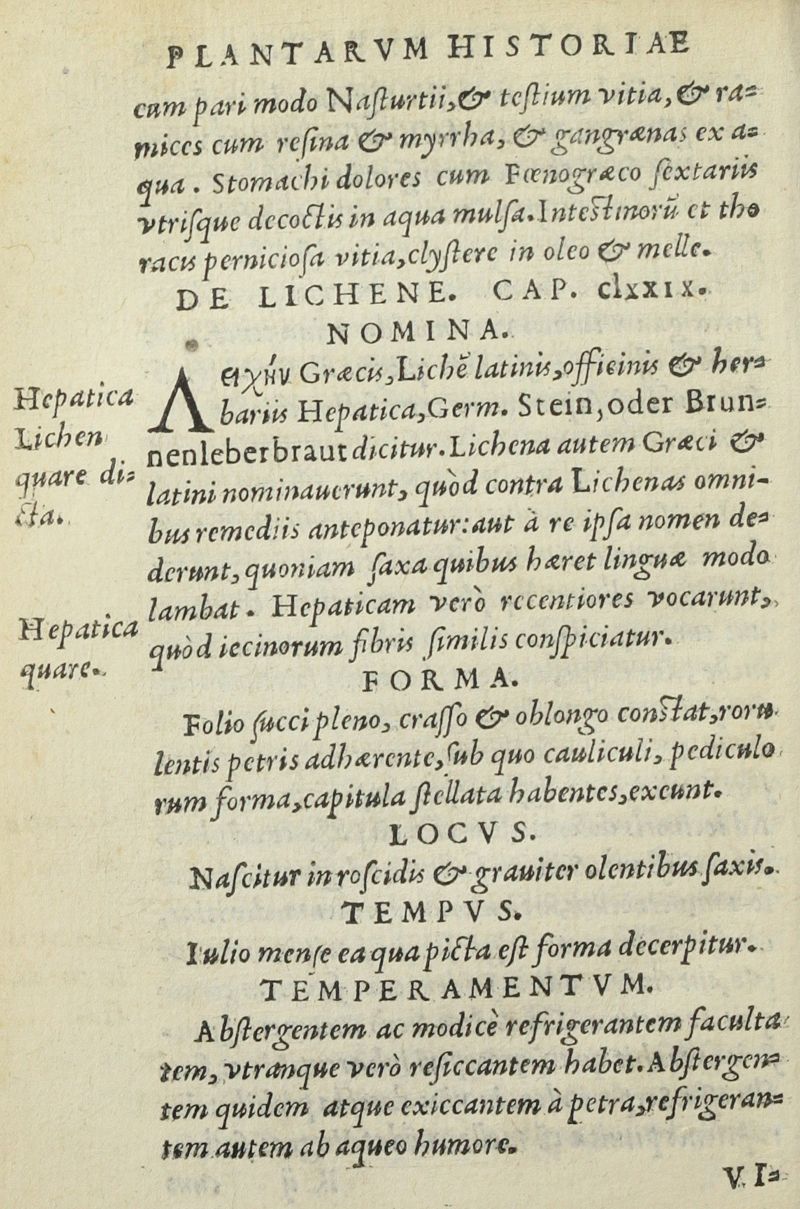 PLANTARVM HISTORIAE
cum pari modo Naſturtii,& teſtium vitia, & ra=
mices cum reſina & myrrha, & gangrænas ex a=
qua. Stomachi dolores cum Fœnogræco ſextariis
vtriſque decoctis in aqua mulſa. Inteſtinorũ et tho
racis perniciosa vitia, clyſtere in oleo & melle.
DE LICHENE. CAP. clxxix.
NOMINA.
Λειχὴν Græcis, Lichẽ latinis, officinis & her=
bariis Hepatica, Germ. Stein, oder Brun=
nenleberbraut dicitur. Lichena autem Græci &
latini nominauerunt, quòd contra Lichenas omni-
bus remediis anteponatur: aut à re ipſa nomen de=
derunt, quoniam ſaxa quibus hæret linguæ modo
lambat. Hepaticam verò recentiores vocarunt,
quòd iecinorum fibris ſimilis conſpiciatur.
Hepatica
Lichen
quare di=
cta.
Hepatica
quare.
FORMA.
Folio ſucci pleno, craſſo & oblongo conſtat, roru
lentis petris adhærente, ſub quo cauliculi, pediculo
rum forma, capitula ſtellata habentes, exeunt.
LOCVS.
Naſcitur in roſcidis & grauiter olentibus ſaxis.
TEMPVS.
Iulio menſe ea qua picta eſt forma decerpitur.
TEMPERAMENTVM.
Abſtergentem ac modicè refrigerantem faculta
tem, vtranque verò reſiccantem habet. Abſtergen=
tem quidem atque exiccantem à petra, refrigeran=
tem autem ab aqueo humore.
VI=